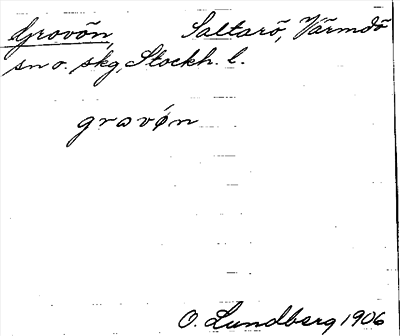 Grovön, Saltarö, Värmdö
sn o. skg, Stockh. l.
gravön
O. Lundberg 1906